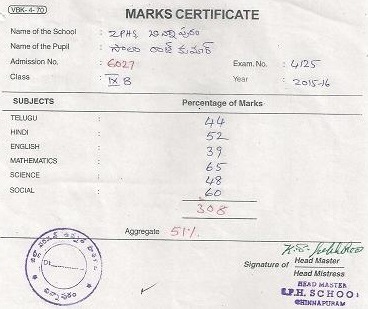 VBK-4-70
MARKS CERTIFICATE
Name of the School : ZPHS చిన్నాపురం
Name of the Pupil : రాజ్ కుమార్
Admission No. : 6027 Exam. No. : 4125
Class : IX B Year : 2015-16
SUBJECTS Percentage of Marks
TELUGU 44
HINDI 52
ENGLISH 39
MATHEMATICS 65
SCIENCE 48
SOCIAL 60
308
Aggregate 51%
Signature of Head Master
Head Mistress
HEAD MASTER
P.H. SCHOOL
CHINNAPURAM
చిన్నాపురం